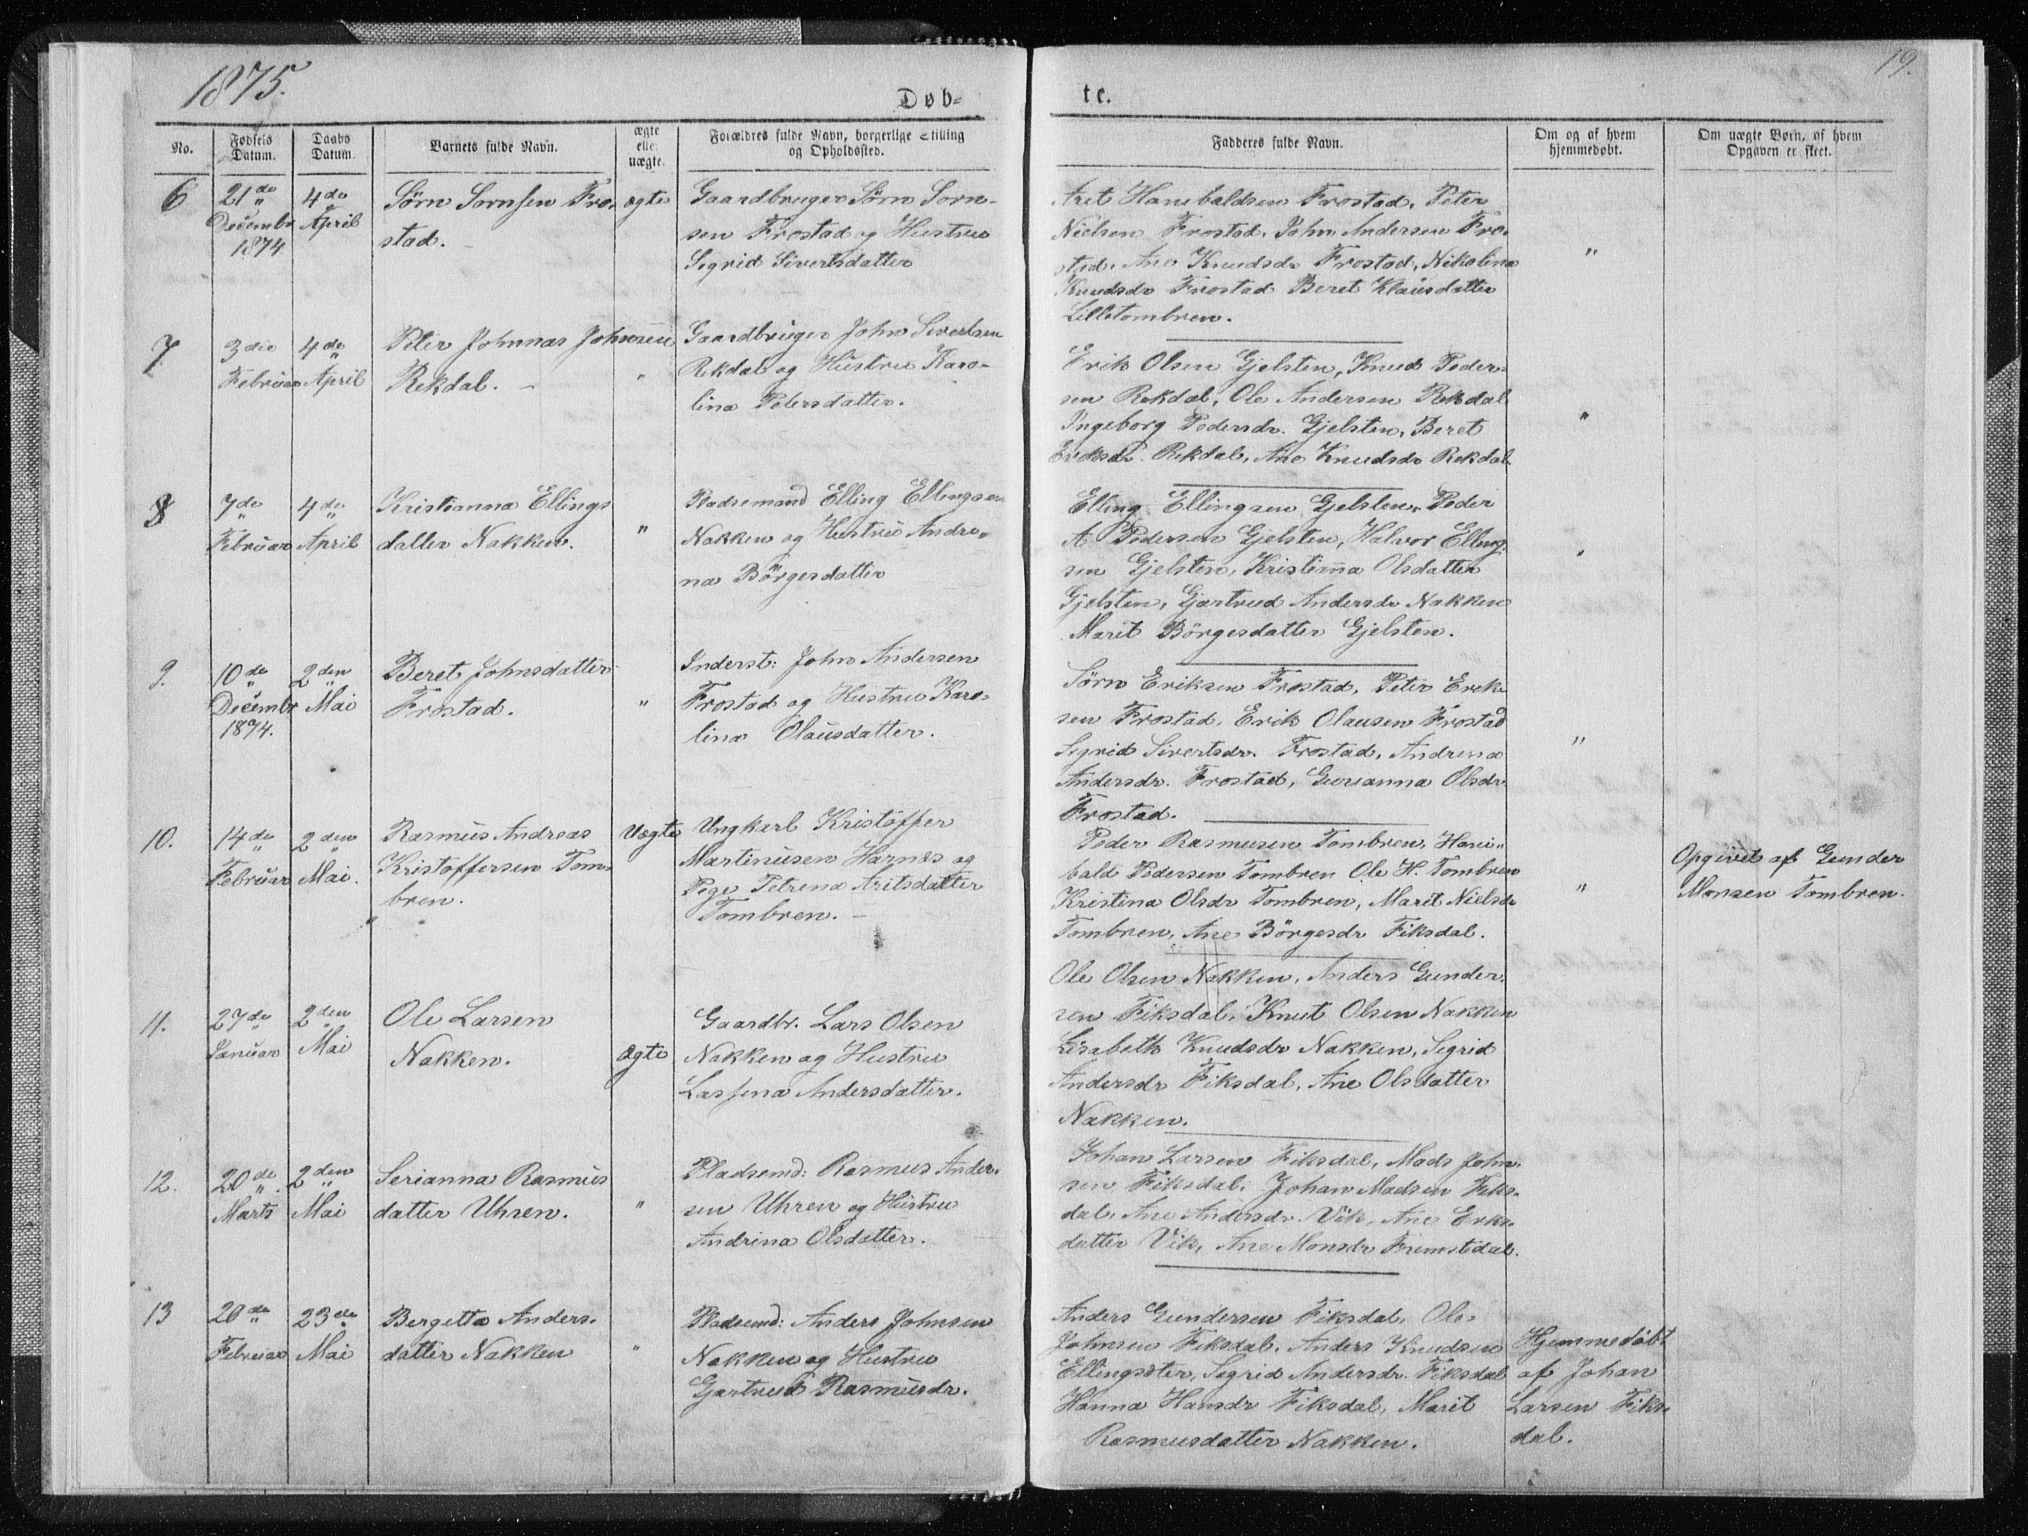 1875.
19.
Døb-
te.
No.
Fødsels Datum.
Daabs Datum.
Barnets fulde Navn.
ægte eller uægte.
Forældres fulde Navn, borgerlige Stilling og Opholdssted.
Fadderes fulde Navn.
Om og af hvem hjemmedøbt.
Om uægte Børn, af hvem Opgaven er skeet.
6
21de Decembr 1874
4de April
Sørn Sørnsen Fro-
stad.
ægte
Gaardbruger Sørn Sørn-
sen Frostad og Hustru
Sigrid Sivertsdatter
Arit Hanibaldsen Frostad, Peter
Nielsen Frostad, John Andersen Fro-
stad, Ane Knudsdr Frostad, Nikolina
Knudsdr Frostad Beret Klausdatter
Lilletombren.
"
7
3die Februar
4de April
Peter Johnnas Johnsen
Rekdal.
"
Gaardbruger John Sivertsen
Rekdal og Hustru Karo-
lina Petersdatter.
Erik Olsen Gjelsten, Knud Peder-
sen Rekdal, Ole Andersen Rekdal
Ingeborg Pedersdr. Gjelsten, Beret
Eriksdr. Rekdal, Ane Knudsdr Rekdal
"
8
7de Februar
4de April
Kristianna Ellings
datter Nakken.
"
Pladsemand Elling Ellingsen
Nakken og Hustru Andre-
na Børgesdatter
Elling Ellingsen Gjelsten, Peder
A Pedersen Gjelsten, Halvor Elling-
sen Gjelsten, Kristianna Olsdatter
Gjelsten, Gjertrud Andersdr Nakken
Marit Børgesdatter Gjelsten.
"
9.
10de Decembr 1874.
2den Mai
Beret Johnsdatter
Frostad.
"
Inderst: John Andersen
Frostad og Hustru Karo-
lina Olausdatter.
Sørn Eriksen Frostad, Peter Erik-
sen Frostad, Erik Olausen Frostad
Sigrid Sivertsdr. Frostad, Andrina
Andersdr. Frostad, Gurianna Olsdr
Frostad.
"
10.
14de Februar
2den Mai.
Rasmus Andreas
Kristoffersen Tom-
bren.
Uægte
Ungkarl Kristoffer
Martinusen Harnes og
Pige Petrena Aritsdatter
Tombren.
Peder Rasmusen Tombren, Hani-
bald Pedersen Tombren Ole H. Tombren
Kristina Olsdr Tombren, Marit Nielsdr
Tombren, Ane Børgesdr Fiksdal.
"
Opgivet af Gunder
Monsen Tombren.
11.
27de Januar
2den Mai
Ole Larsen
Nakken.
ægte
Gaardbr. Lars Olsen
Nakken og Hustru
Lassena Andersdatter.
Ole Olsen Nakken, Anders Gunder-
sen Fiksdal, Knut Olsen Nakken
Lisabeth Knudsdr Nakken, Sigrid
Andersdr Fiksdal, Ane Olsdatter
Nakken.
12.
20de Marts
2den Mai
Serianna Rasmus
datter Uhren.
"
Pladsemd: Rasmus Ander-
sen Uhren og Hustru
Andrina Olsdatter.
Johan Larsen Fiksdal, Mads John-
sen Fiksdal, Johan Madsen Fiks-
dal, Ane Andersdr. Vik, Ane Eriks-
datter Vik, Ane Monsdr Fremstdal.
13
20de Februar
23de Mai
Bergitta Anders-
datter Nakken
"
Pladsemd: Anders Johnsen
Nakken og Hustru
Gjertrud Rasmusdr.
Anders Gundersen Fiksdal, Ole
Johnsen Fiksdal, Anders Knudsen
Sigrid Andersdr. Fiksdal
Hanna Hansdr Fiksdal, Marit
Rasmusdatter Nakken.
Hjemmedøbt
af Johan
Larsen Fiks-
dal.